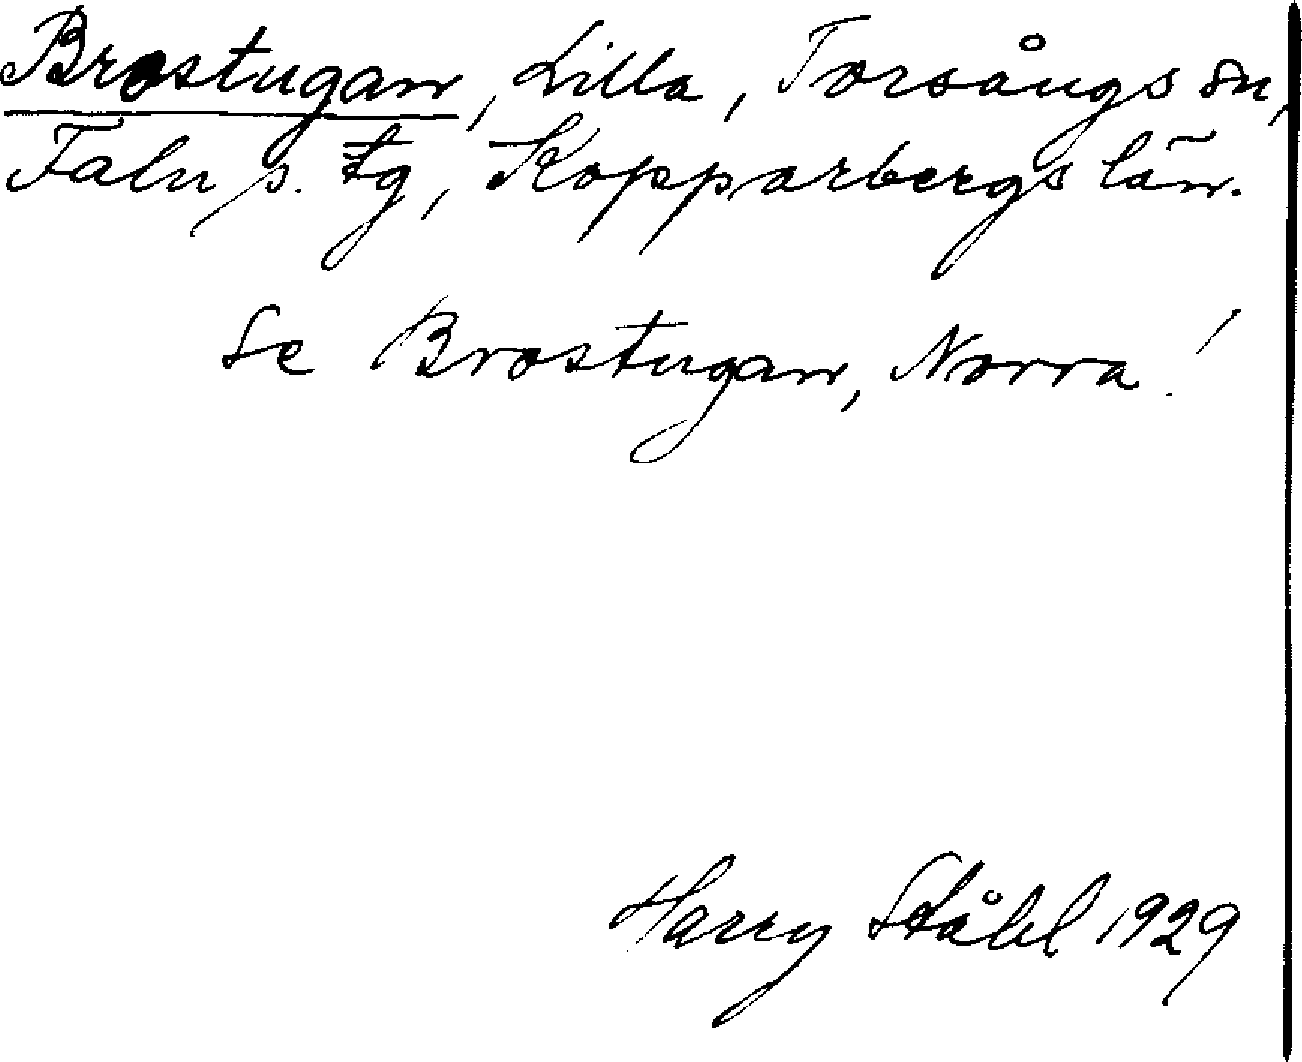 Brostugan, Lilla, Torsångs sn,
Falu s. tg, Kopparbergs län.
Se Brostugan, Norra!
Harry Ståhl 1929